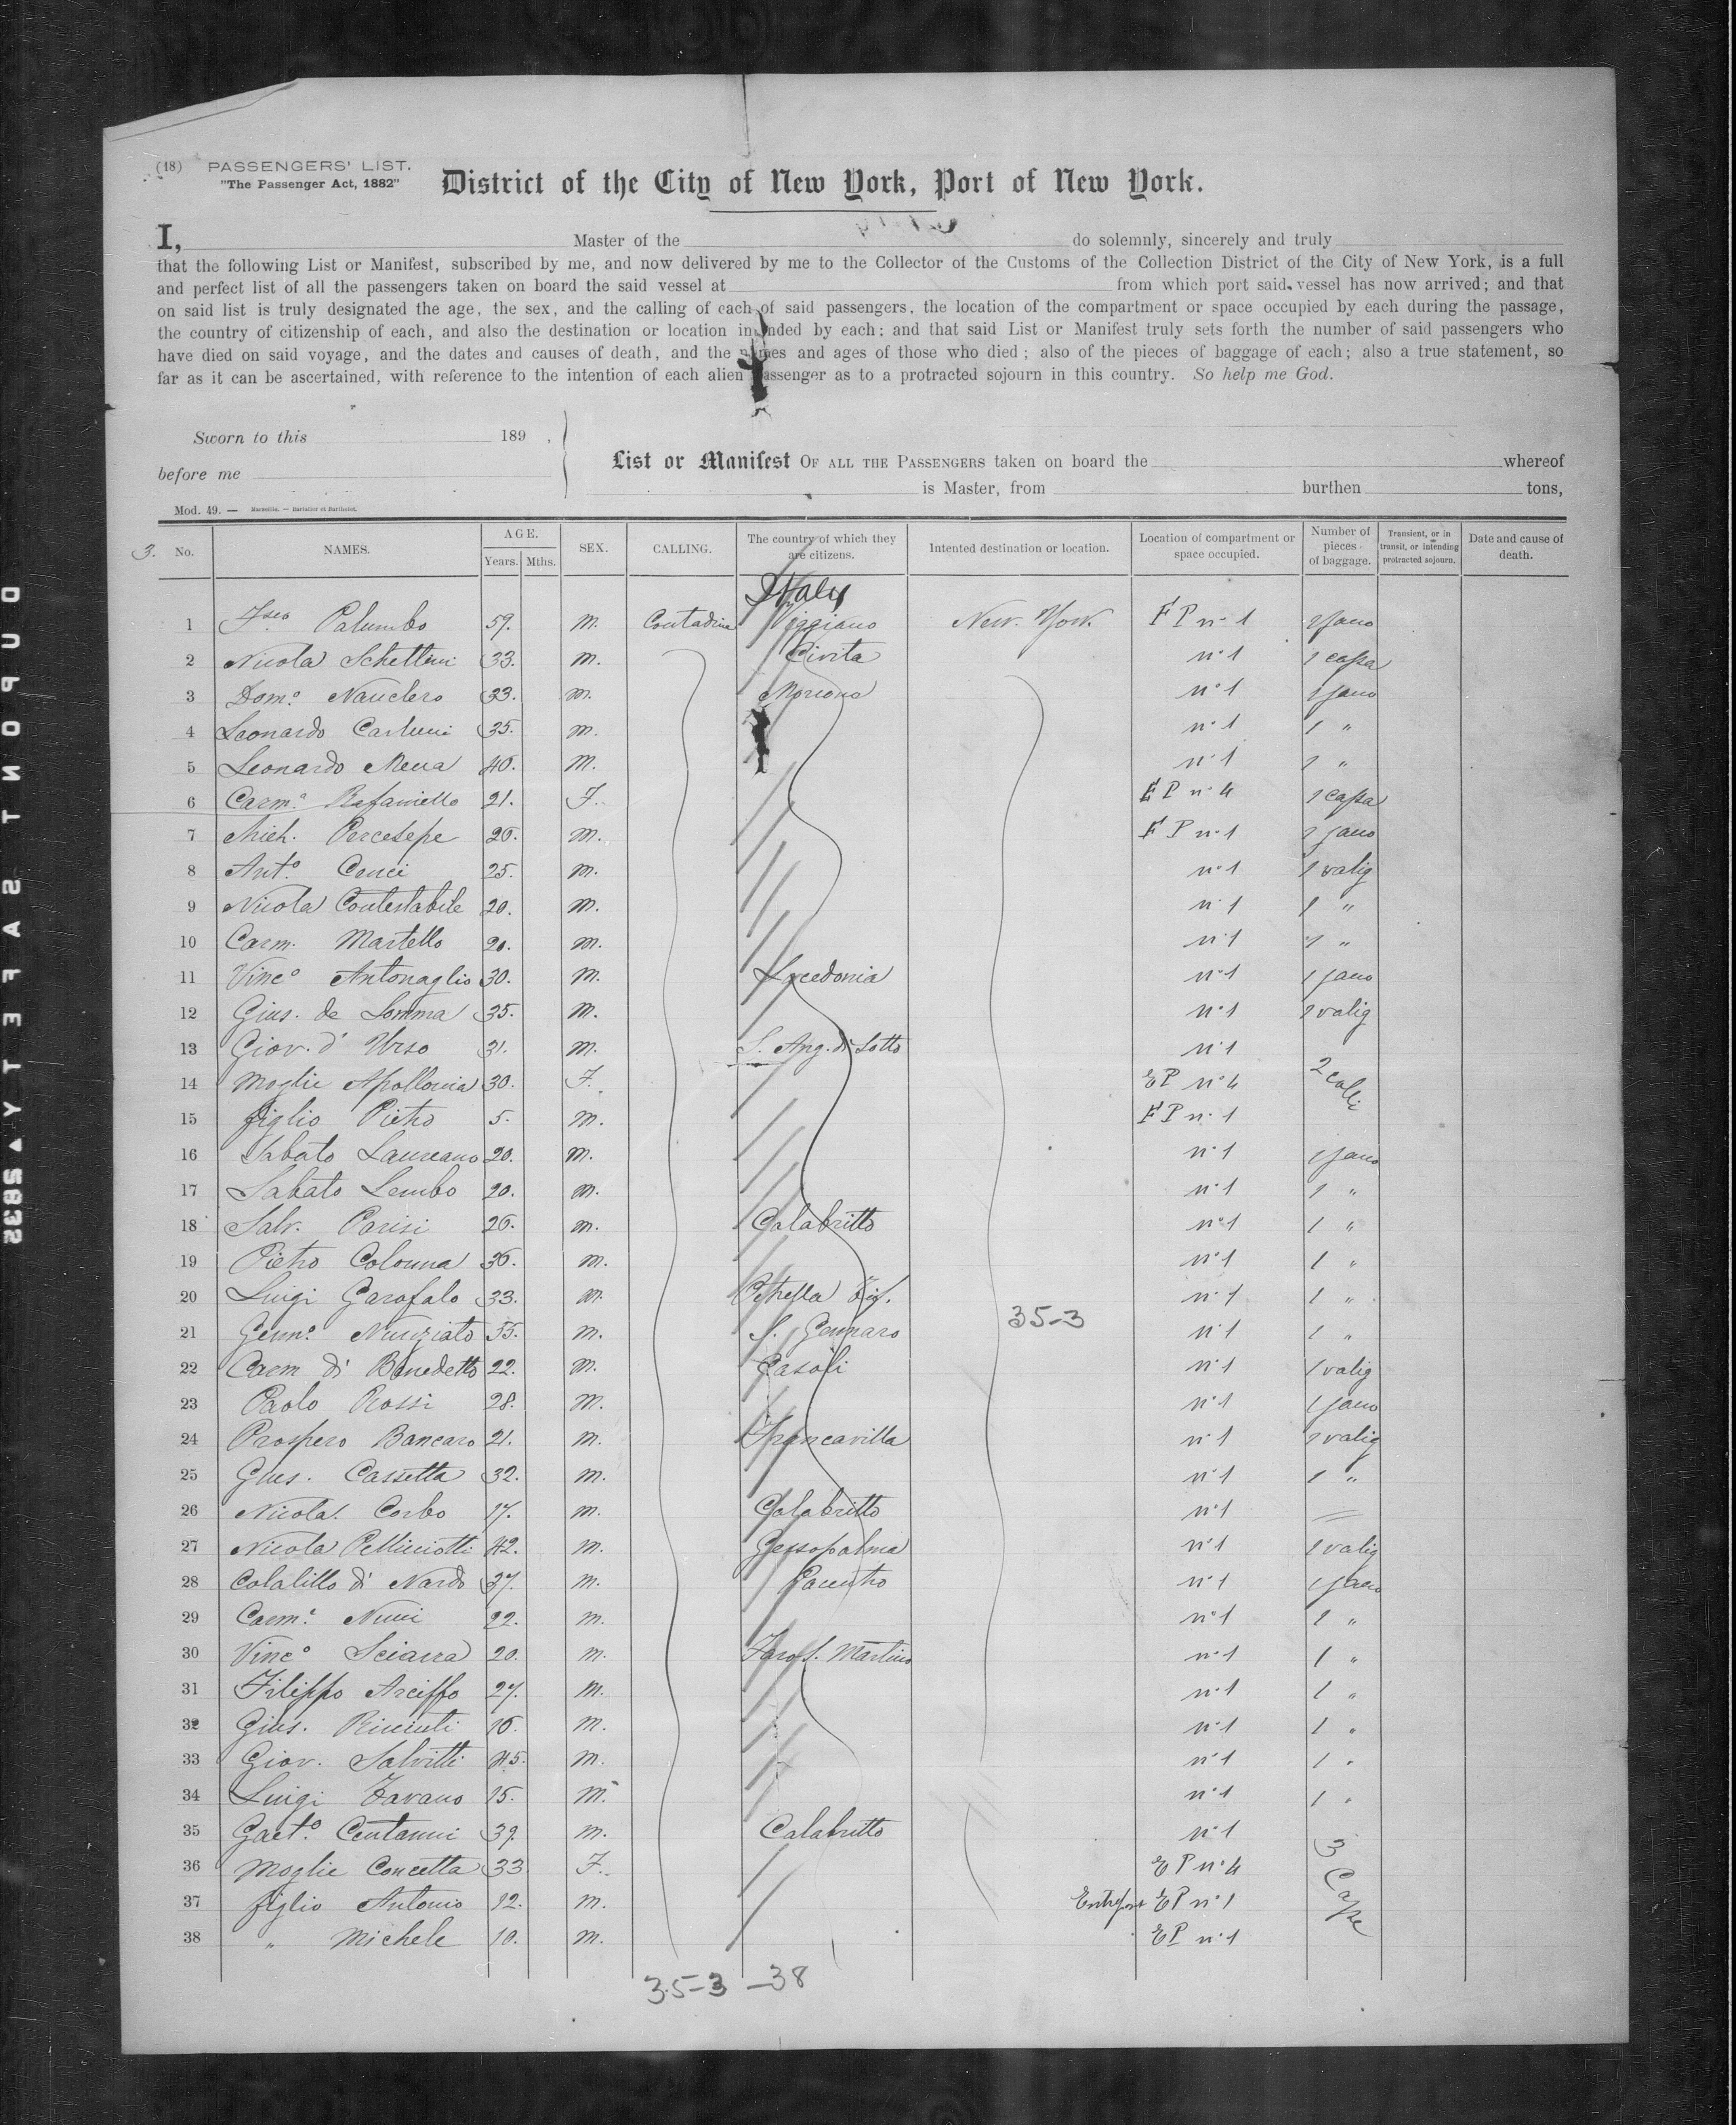 (18) PASSENGERS' LIST.
"The Passenger Act, 1882"
District of the City of New York, Port of New York.
I, Master of the do solemnly, sincerely and truly
that the following List or Manifest, subscribed by me, and now delivered by me to the Collector of the Customs of the Collection District of the City of New York, is a full
and perfect list of all the passengers taken on board the said vessel at from which port said vessel has now arrived; and that
on said list is truly designated the age, the sex, and the calling of each of said passengers, the location of the compartment or space occupied by each during the passage,
the country of citizenship of each, and also the destination or location intended by each; and that said List or Manifest truly sets forth the number of said passengers who
have died on said voyage, and the dates and causes of death, and the names and ages of those who died; also of the pieces of baggage of each; also a true statement, so
far as it can be ascertained, with reference to the intention of each alien passenger as to a protracted sojourn in this country. So help me God.
Sworn to this 189
before me
List or Manifest OF ALL THE PASSENGERS taken on board the whereof
is Master, from burthen tons,
Mod. 49. — Marseille. — Barlatier et Barthelet.
3. No. NAMES. AGE. Years. Mths. SEX. CALLING. The country of which they are citizens. Intented destination or location. Location of compartment or space occupied. Number of pieces of baggage. Transient, or in transit, or intending protracted sojourn. Date and cause of death.
Italy
1 Palumbo 59. m. Contadine Viggiano New. York. F P n° 1
2 Nicola Schettini 33. m. Civita n° 1 1 cassa
3 Dom.o Nauclero 33. m. n° 1
4 Leonardo 35. m. n° 1 1 "
5 Leonardo Mena 40. m. n° 1 1 "
6 Carm.a Rafaniello 21. F. E P n° 4 1 cassa
7 Mich. Percesepe 26. m. F P n° 1
8 Ant.o Cenci 25. m. n° 1 1 valig
9 Nicola Contestabile 20. m. n° 1 1 "
10 Carm. Martello 20. m. n° 1 1 "
11 Vinc.o Antonaglio 30. m. Lacedonia n° 1
12 Gius. de Somma 35. m. n° 1 1 valig
13 Giov. d' Urso 31. m. S. Ang. di Lotto n° 1
14 Moglie Apollonia 30. F. E P n° 4 2 colli
15 figlio Pietro 5. m. F P n° 1
16 Sabato Laureano 20. m. n° 1
17 Sabato Lembo 20. m. n° 1 1 "
18 Salv. Parisi 26. m. Calabritto n° 1 1 "
19 Pietro Colonna 36. m. n° 1 1 "
20 Luigi Garofalo 33. m. Petrella n° 1 1 "
35-3
21 Genn.o Nunziato 55. m. S. Gennaro n° 1 1 "
22 Carm di Benedetto 22. m. Casoli n° 1 1 valig
23 Paolo Rossi 28. m. n° 1
24 Prospero Bancaro 21. m. Francavilla n° 1 1 valig
25 Gius. Cassetta 32. m. n° 1 1 "
26 Nicola Corbo 17. m. Calabritto n° 1
27 Nicola Pellicciotti 42. m. Gessopalena n° 1 1 valig
28 Colalillo di Nardo 37. m. Pacentro n° 1
29 Carm.e 22. m. n° 1 1 "
30 Vinc.o Sciarra 20. m. Fara S. Martino n° 1 1 "
31 Filippo 27. m. n° 1 1 "
32 Gius. 16. m. n° 1 1 "
33 Giov. Salvitti 45. m. n° 1 1 "
34 Luigi Tavano 15. m. n° 1 1 "
35 Gaet.o Centanni 39. m. Calabritto n° 1
36 Moglie Concetta 33 F. E P n° 4 3 Casse
37 figlio Antonio 12. m. E P n° 1
38 " Michele 10. m. E P n° 1
35-3 -38
DUPONT SAFETY 2535